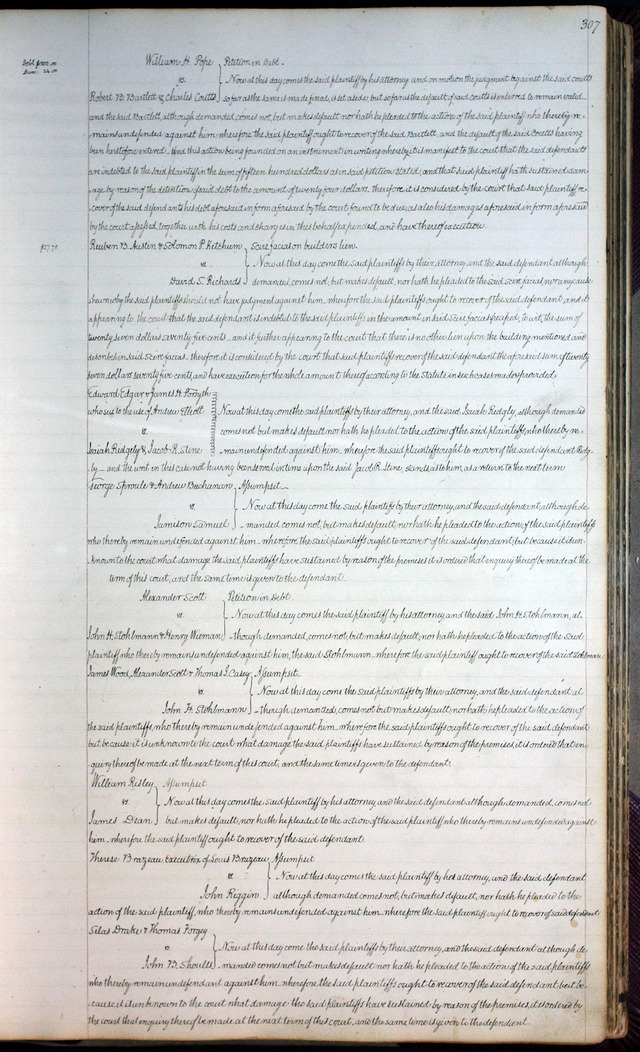 307
Debt $1500.00
Dam: 24.00
William H. Pope } Petition in Debt.
vs. } Now at this day comes the said plaintiff by his attorney and on motion the judgment against the said coutts
Robert B Bartlett & Charles Coutts } so far as the same is made final, is set aside, but so far as the default of said coutts is entered to remain valid
and the said Bartlett, although demanded comes not, but makes default nor hath he pleaded to the action of the said plaintiff who thereby re-
mains undefended against him. wherefore the said plaintiff ought to recover of the said Bartlett, and the default of the said Coutts having
been heretofore entered. And this action being founded on an instrument in writing whereby it is manifest to the court that the said defendants
are indebted to the said plaintiff in the sum of fifteen hundred dollars as in said petition stated, and that said plaintiff hath sustained dam-
age by reason of the detention of said debt to the amount of twenty four dollars. therefore it is considered by the court that said plaintiff re-
cover of the said defendants his debt aforesaid in form aforesaid by the court found to be due, as also his damages aforesaid in form aforesaid
by the court assessed, together with his costs and charges in this behalf expended, and have thereof execution.
$27.75
Reuben B. Austin & Solomon P. Ketchum } Scire facias on builders lien.
vs. } Now at this day come the said plaintiffs by their attorney and the said defendant although
David S. Richards } demanded comes not, but makes default, nor hath he pleaded to the said scire facias, nor any cause
shewn why the said plaintiffs should not have judgment against him. wherefore the said plaintiffs ought to recover of the said defendant. and it
appearing to the court that the said defendant is indebted to the said plaintiffs in the amount in said scire facias specified, to wit, the sum of
twenty seven dollars seventy five cents - and it further appearing to the court that there is no other lien upon the building mentioned and
described in said scire facias. therefore it is considered by the court that said plaintiffs recover of the said defendant the aforesaid sum of twenty
seven dollars seventy five cents, and have execution for the whole amount thereof according to the Statute in such cases made & provided.
Edward Edgar & James H. Forsyth
who sue to the use of Andrew Elliott } Now at this day come the said plaintiffs by their attorney, and the said Isaiah Ridgely, although demanded
vs. } comes not but makes default nor hath he pleaded to the action of the said plaintiffs, who thereby re-
Isaiah Ridgely & Jacob R. Stine } main undefended against him. wherefore the said plaintiffs ought to recover of the said defendant Ridge-
ly - and the writ in this case not having been served in time upon the said Jacob R. Stine, stands as to him, as a return to the next term
George Sproule & Andrew Buchanan } Assumpsit.
vs. } Now at this day come the said plaintiffs by their attorney, and the said defendant although de-
Jamison Samuel } manded comes not, but makes default, nor hath he pleaded to the action of the said plaintiffs
who thereby remain undefended against him. wherefore the said plaintiffs ought to recover of the said defendant, but because it is un-
known to the court what damage the said plaintiffs have sustained by reason of the premises it is ordered that enquiry thereof be made at the
term of this court, and the same time is given to the defendant.
Alexander Scott } Petition in Debt.
vs. } Now at this day comes the said plaintiff by his attorney and the said John H. Stohlmann, al-
John H. Stohlmann & Henry Wieman } though demanded, comes not, but makes default, nor hath he pleaded to the action of the said
plaintiff who thereby remains undefended against him, the said Stohlmann. wherefore the said plaintiff ought to recover of the said Stohlmann.
James Wood, Alexander Scott & Thomas J. Casey } Assumpsit.
vs. } Now at this day come the said plaintiffs by their attorney, and the said defendant al-
John H. Stohlmann } though demanded, comes not but makes default, nor hath he pleaded to the action of
the said plaintiffs, who thereby remain undefended against him. wherefore the said plaintiffs ought to recover of the said defendant
but because it is unknown to the court what damage the said plaintiffs have sustained by reason of the premises, it is ordered that en-
quiry thereof be made at the next term of this court, and the same time is given to the defendant.
William Risley } Assumpsit
vs } Now at this day comes the said plaintiff by his attorney and the said defendant although demanded, comes not
James Dean } but makes default, nor hath he pleaded to the action of the said plaintiff who thereby remains undefended against
him. wherefore the said plaintiff ought to recover of the said defendant
Therese Brazeau Executrix of Louis Brazeau } Assumpsit
vs } Now at this day comes the said plaintiff by her attorney, and the said defendant,
John Riggin } although demanded comes not, but makes default, nor hath he pleaded to the
action of the said plaintiff, who thereby remains undefended against him. wherefore the said plaintiff ought to recover of said defendant
Silas Drake & Thomas Forgey
vs. } Now at this day come the said plaintiffs by their attorney, and the said defendant although de-
John B. Shoults } manded comes not but makes default nor hath he pleaded to the action of the said plaintiffs
who thereby remain undefended against him. wherefore the said plaintiffs ought to recover of the said defendant, but be-
cause it is unknown to the court what damage the said plaintiffs have sustained by reason of the premises, it is ordered by
the court that enquiry thereof be made at the next term of this court, and the same time is given to the defendant.